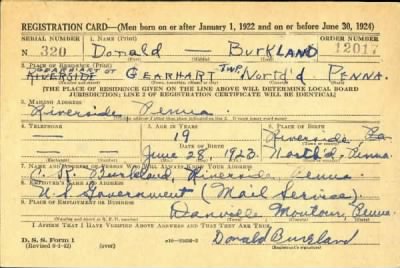 REGISTRATION CARD—(Men born on or after January 1, 1922 and on or before June 30, 1924)
SERIAL NUMBER 1. NAME (Print) ORDER NUMBER
N 320 Donald — Burkland 12017
(First) (Middle) (Last)
2. PLACE OF RESIDENCE (Print)
GEARHART
RIVERSIDE GEARHART TWP. North'd PENNA.
[THE PLACE OF RESIDENCE GIVEN ON THE LINE ABOVE WILL DETERMINE LOCAL BOARD
JURISDICTION; LINE 2 OF REGISTRATION CERTIFICATE WILL BE IDENTICAL]
3. MAILING ADDRESS
Riverside Penna.
4. TELEPHONE 5. AGE IN YEARS 6. PLACE OF BIRTH
— 19 Riverside
DATE OF BIRTH
— June 28, 1923 North'd, Penna.
7. NAME AND ADDRESS OF PERSON WHO WILL ALWAYS KNOW YOUR ADDRESS
C. R. Burkland, Riverside, Penna.
8. EMPLOYER'S NAME AND ADDRESS
U.S. Government (Mail Service)
9. PLACE OF EMPLOYMENT OR BUSINESS
Danville, Montour, Penna.
I AFFIRM THAT I HAVE VERIFIED ABOVE ANSWERS AND THAT THEY ARE TRUE.
D. S. S. Form 1
(Revised 6-9-42) (over)
Donald Burkland